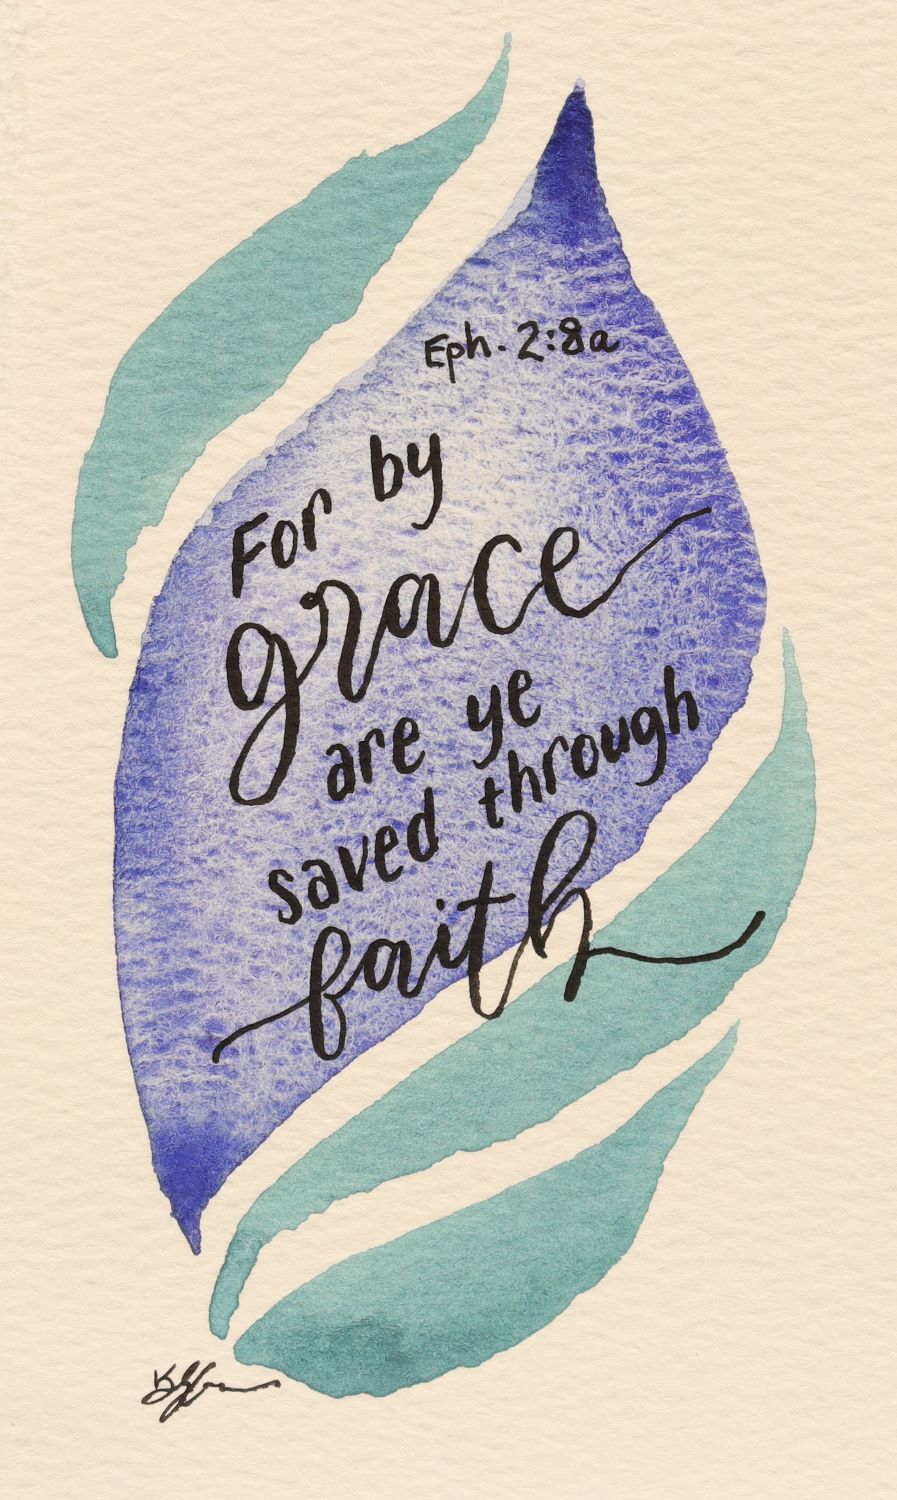 Eph. 2:8a
For by
grace
are ye
saved through
faith